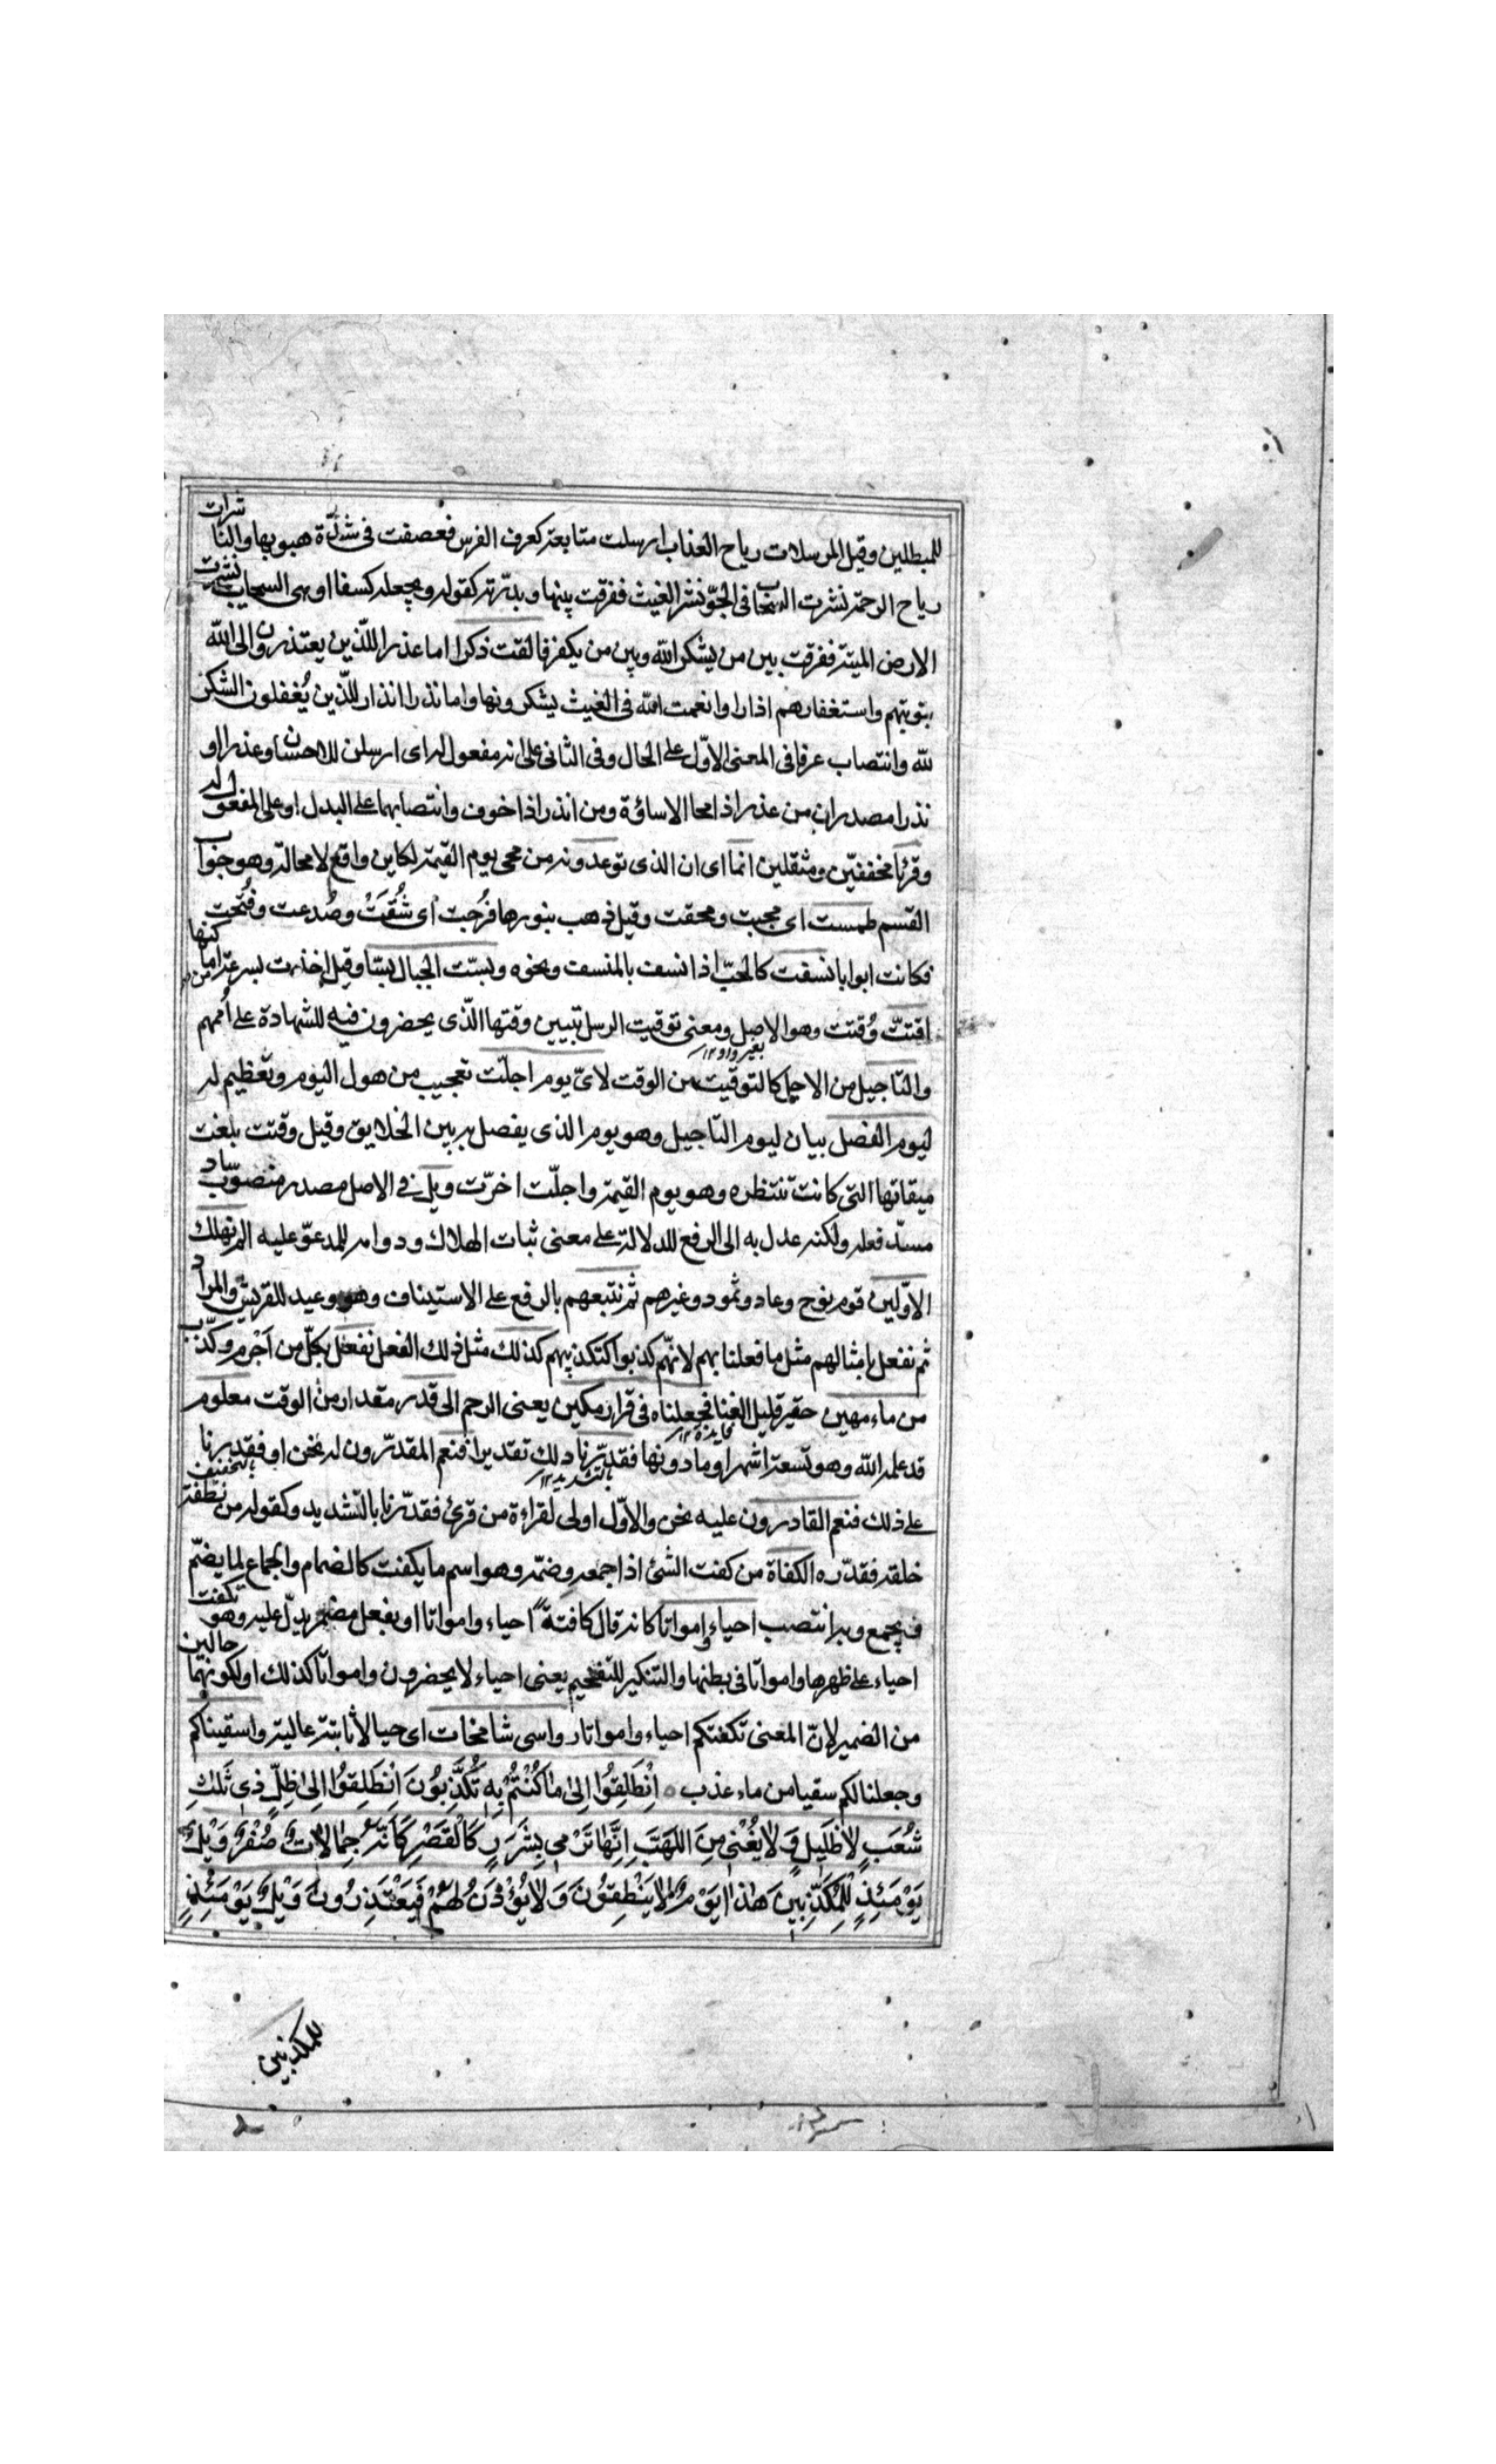 للمبطلين وقيل المرسلات رياح العذاب ارسلت متابعة كعرف الفرس فعصفت فى شدّة هبوبها والناشرات
رياح الرحمة نشرت السحاب فى الجوّ نشر الغيث ففرقت بينها وبدّدته كقوله ويجعله كسفا او هى السحايب نشرت
الارض الميتة ففرقت بين من يشكر الله وبين من يكفر فالقت ذكرا اما عذرا للذين يعتذرون الى الله
بتوبتهم واستغفارهم اذا راوا نعمت الله فى الغيث يشكرونها واما نذرا انذار للّذين يُغفلون الشكر
لله وانتصاب عرفا فى المعنى الاوّل على الحال وفى الثانى على انه مفعول له اى ارسلن للاحسان وعذرا او
نذرا مصدران من عذر اذا محا الاساؤة ومن انذر اذا خوف وانتصابهما على البدل او على المفعول له
وقرئا مخففيّن ومثقلين انما اى ان الذى توعدونه من مجى يوم القيمة لكاين واقع لا محالة وهو جواب
القسم طمست اى محيت ومحقت وقيل ذهب بنورها فُرُجت اى شُقّت وصُدعت وفُتحت
فكانت ابوابا نسفت كالحبّ اذا نسف بالمنسف ونحوه وبسّت الجبال بسّا وقيل اخذت بسرعة من اماكنها
اقتتّ وُقتت وهو الاصل ومعنى توقيت الرسل تبيين وقتها الّذى يحضرون فيه للشهادة على اُممهم
بغير واو ١٢
والتاجيل من الاجل كالتوقيت من الوقت لاىّ يوم اجلّت تعجيب من هول اليوم وتعظيم له
ليوم الفصل بيان ليوم التاجيل وهو يوم الذى يفصل به بين الخلايق وقيل وقتت بلغت
ميقاتها التى كانت تنتظره وهو يوم القيمة واجلّت اخرّت ويل فى الاصل مصدر منصوب سادّ
مسدّ فعله ولكنه عدل به الى الرفع للدلالة على معنى ثبات الهلاك ودوامه للمدعوّ عليه الم نهلك
الاوّلين قوم نوح وعاد وثمود وغيرهم ثم نتبعهم بالرفع على الاستيناف وهو وعيد للقريش والمراد
ثم نفعل بامثالهم مثل ما فعلنا بهم لانّهم كذبوا كتكذيبهم كذلك مثل ذلك الفعل نفعل بكلّ من اَجْرم وكذّب
من ماء مهين حقير قليل الغنا فجعلناه فى قرار مكين يعنى الرحم الى قدر مقدار من الوقت معلوم
قد علمه الله وهو تسعة اشهر او ما دونها فقدّرنا ذلك تقديرا فنعم المقدّرون له نحن او فقدرنا
بالتشديد ١٢ بالتخفيف
على ذلك فنعم القادرون عليه نحن والاوّل اولى لقراءة من قرئ فقدّرنا بالتشديد وكقوله من نطفة
خلقه فقدّره الكفاة من كفت الشئ اذا جمعه وضمّه وهو اسم ما يكفت كالضمام والجماع لما يضمّ
فيجمع وبه انتصب احياء وامواتا كانه قال كافتة احياء وامواتا او بفعل مضمر يدلّ عليه وهو تكفت
احياء على ظهرها وامواتا فى بطنها والتنكير للتفخيم يعنى احياء لا يحضرون وامواتا كذلك او لكونهما حالين
من الضمير لانّ المعنى تكفتكم احياء وامواتا رواسى شامخات اى جبالا ثابتة عالية واسقيناكم
وجعلنا لكم سقيا من ماء عذب ۝ اِنْطَلِقُوْا اِلىٰ مٰا كُنْتُمْ بِهٖ تُكَذِّبُوْنَ اِنْطَلِقُوْا اِلىٰ ظِلٍّ ذِىْ ثَلٰثِ
شُعَبٍ لاٰ ظَلِيْلٍ وَلاٰ يُغْنِىْ مِنَ اللَّهَبِ اِنَّهٰا تَرْمِىْ بِشَرَرٍ كَالْقَصْرِ كَاَنَّهُ جِمٰالاٰتٌ صُفْرٌ وَيْلٌ
يَوْمَئِذٍ لِلْمُكَذِّبِيْنَ هٰذٰا يَوْمُ لاٰ يَنْطِقُوْنَ وَلاٰ يُؤْذَنُ لَهُمْ فَيَعْتَذِرُوْنَ وَيْلٌ يَوْمَئِذٍ
للمكذبين